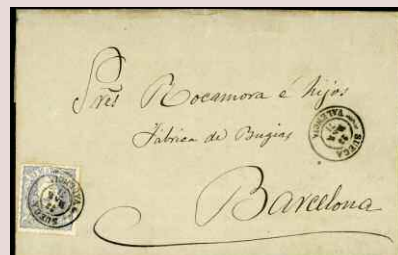 Sres Rocamora é hijos
Fábrica de Bugias
SUECA
VALENCIA
Barcelona
SUECA
VALENCIA